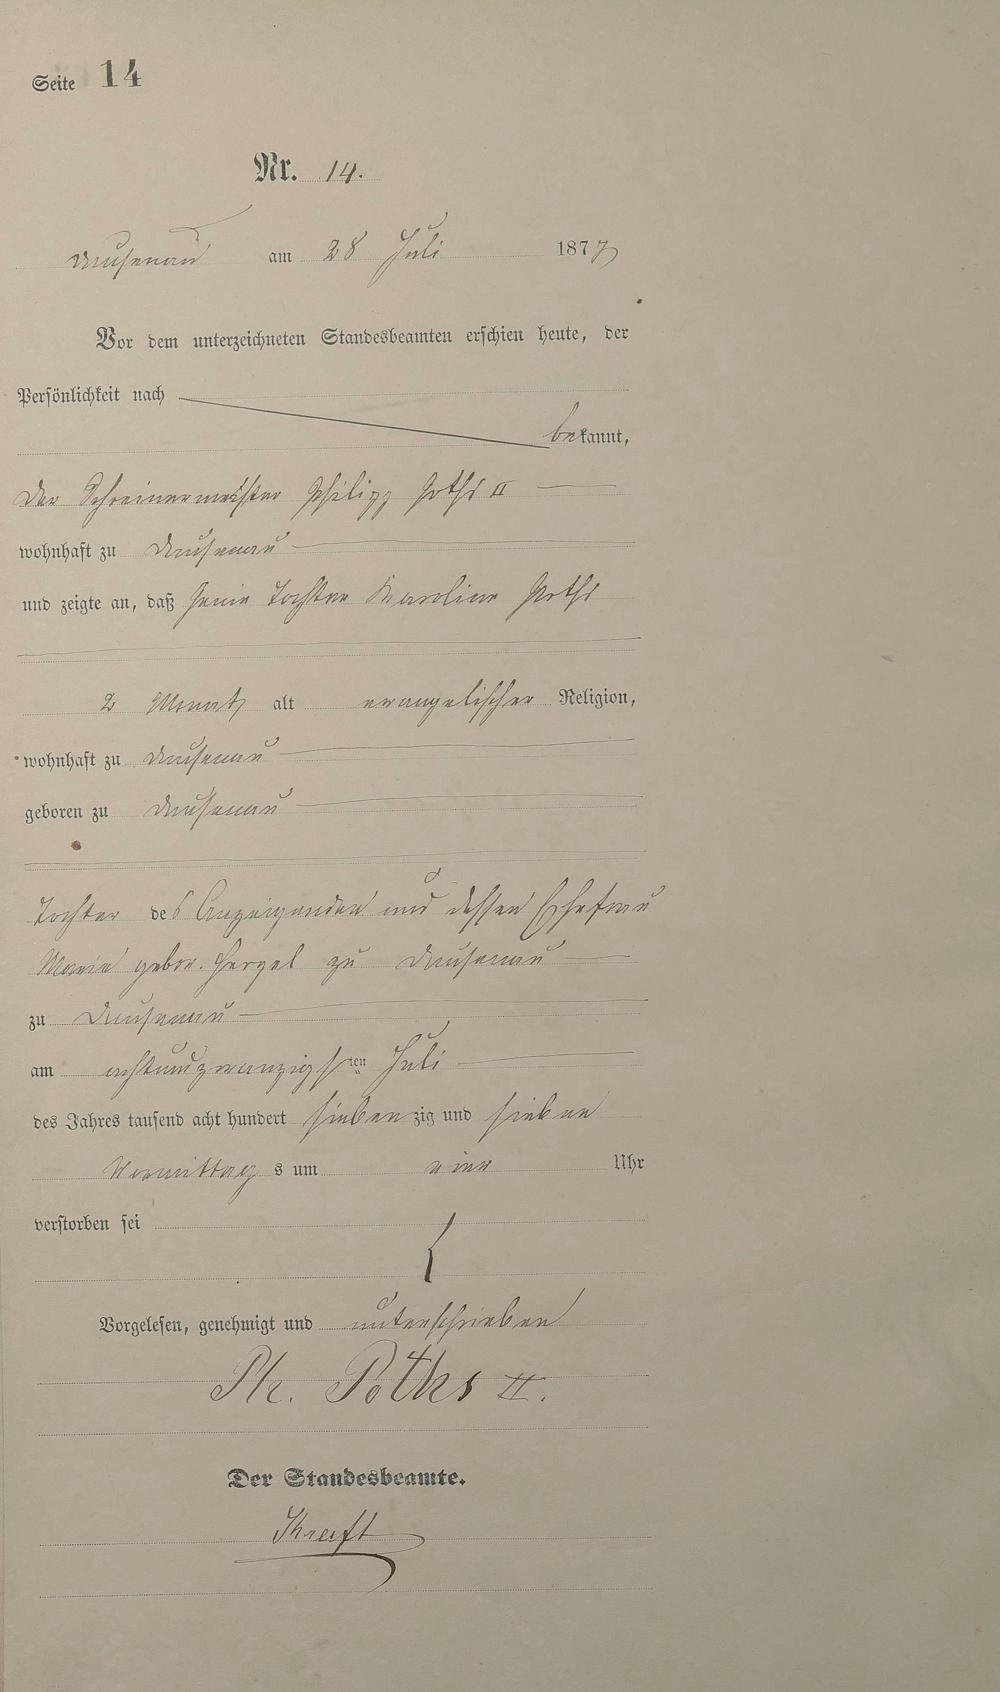 Seite 14
Nr. 14.
Dausenau am 28 Juli 1877
Vor dem unterzeichneten Standesbeamten erschien heute, der
Persönlichkeit nach
bekannt,
Der Schreinermeister Philipp Poths II
wohnhaft zu Dausenau
und zeigte an, daß seine Tochter Karoline Poths
2 Monat alt evangelischer Religion,
wohnhaft zu Dausenau
geboren zu Dausenau
Tochter des Anzeigenden und dessen Ehefrau
Marie gebor. zu Dausenau
zu Dausenau
am achtundzwanzigsten Juli
des Jahres tausend acht hundert siebenzig und sieben
Vormittags um Uhr
verstorben sei
Vorgelesen, genehmigt und unterschrieben
Ph. Poths II.
Der Standesbeamte.